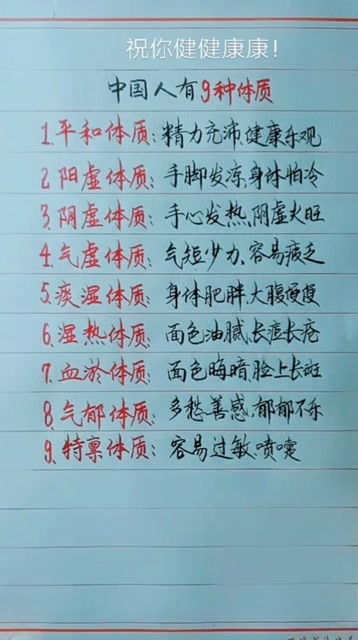 祝你健健康康!
中国人有9种体质
1.平和体质:精力充沛,健康乐观
2.阳虚体质:手脚发凉,身体怕冷
3.阴虚体质:手心发热,阴虚火旺
4.气虚体质:气短少力,容易疲乏
5.痰湿体质:身体肥胖,大腹便便
6.湿热体质:面色油腻,长痘长疮
7.血淤体质:面色晦暗,脸上长斑
8.气郁体质:多愁善感,郁郁不乐
9.特禀体质:容易过敏,喷嚏